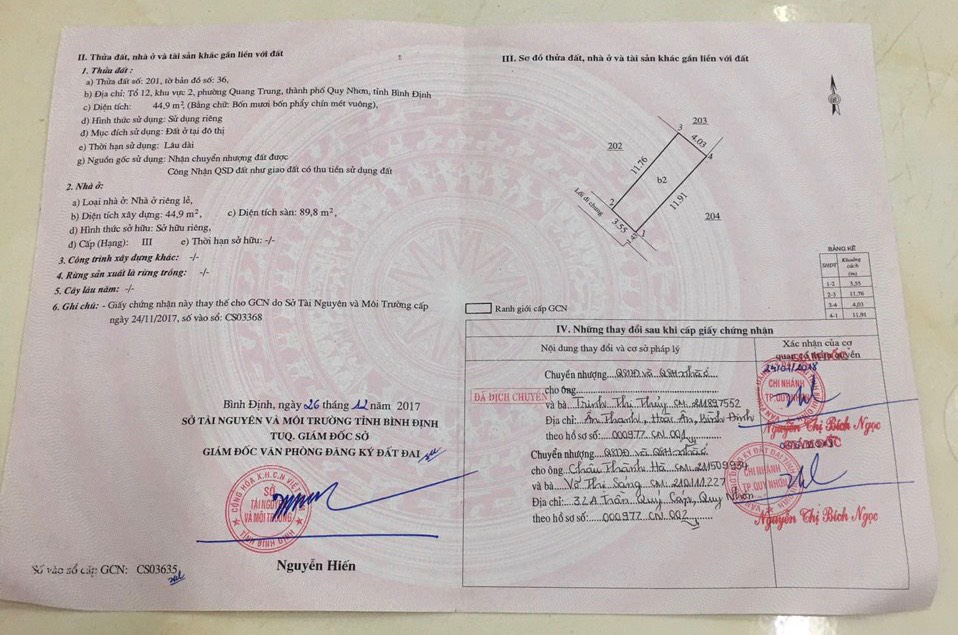 II. Thửa đất, nhà ở và tài sản khác gắn liền với đất
1. Thửa đất :
a) Thửa đất số: 201, tờ bản đồ số: 36,
b) Địa chỉ: Tổ 12, khu vực 2, phường Quang Trung, thành phố Quy Nhơn, tỉnh Bình Định
c) Diện tích: 44,9 m², (Bằng chữ: Bốn mươi bốn phẩy chín mét vuông),
d) Hình thức sử dụng: Sử dụng riêng
đ) Mục đích sử dụng: Đất ở tại đô thị
e) Thời hạn sử dụng: Lâu dài
g) Nguồn gốc sử dụng: Nhận chuyển nhượng đất được
Công Nhận QSD đất như giao đất có thu tiền sử dụng đất
2. Nhà ở:
a) Loại nhà ở: Nhà ở riêng lẻ,
b) Diện tích xây dựng: 44,9 m², c) Diện tích sàn: 89,8 m²,
d) Hình thức sở hữu: Sở hữu riêng,
đ) Cấp (Hạng): III e) Thời hạn sở hữu: -/-
3. Công trình xây dựng khác: -/-
4. Rừng sản xuất là rừng trồng: -/-
5. Cây lâu năm: -/-
6. Ghi chú: - Giấy chứng nhận này thay thế cho GCN do Sở Tài Nguyên và Môi Trường cấp
ngày 24/11/2017, số vào sổ: CS03368
Bình Định, ngày 26 tháng 12 năm 2017
SỞ TÀI NGUYÊN VÀ MÔI TRƯỜNG TỈNH BÌNH ĐỊNH
TUQ. GIÁM ĐỐC SỞ
GIÁM ĐỐC VĂN PHÒNG ĐĂNG KÝ ĐẤT ĐAI
CỘNG HÒA X.H.C.N VIỆT NAM
SỞ
TÀI NGUYÊN
VÀ MÔI TRƯỜNG
TỈNH BÌNH ĐỊNH
Nguyễn Hiến
Số vào sổ cấp GCN: CS03635
III. Sơ đồ thửa đất, nhà ở và tài sản khác gắn liền với đất
203
3
4.03
4
202
11.76
b2
11.91
204
2
Lối đi chung
3.55
1
1.45
BẢNG KÊ
SHDT Khoảng cách (m)
1-2 3,55
2-3 11,76
3-4 4,03
4-1 11,91
Ranh giới cấp GCN
IV. Những thay đổi sau khi cấp giấy chứng nhận
Nội dung thay đổi và cơ sở pháp lý
Xác nhận của cơ
quan có thẩm quyền
Chuyển nhượng QSDĐ và QSH nhà ở
cho ông
ĐÃ DỊCH CHUYỂN
và bà Trịnh Thị Thủy CM 211897552
Địa chỉ: Ân Thạnh, Hoài Ân, Bình Định
theo hồ sơ số: 000977 CN 001
CHI NHÁNH
TP. QUY NHƠN
Nguyễn Thị Bích Ngọc
Chuyển nhượng QSDĐ và QSH nhà ở
cho ông Châu Thành Hà CM 211509934
và bà Võ Thị Sáng CM 210111227
Địa chỉ: 32A Trần Quý Cáp, Quy Nhơn
theo hồ sơ số: 000977 CN 002
CHI NHÁNH
TP. QUY NHƠN
Nguyễn Thị Bích Ngọc